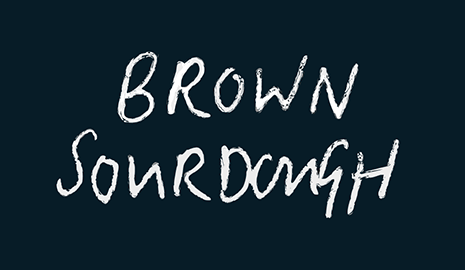 BROWN
SOURDOUGH